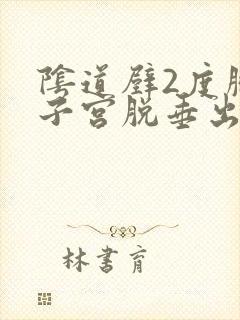 陰道壁2度
子宮脱垂出
林書育